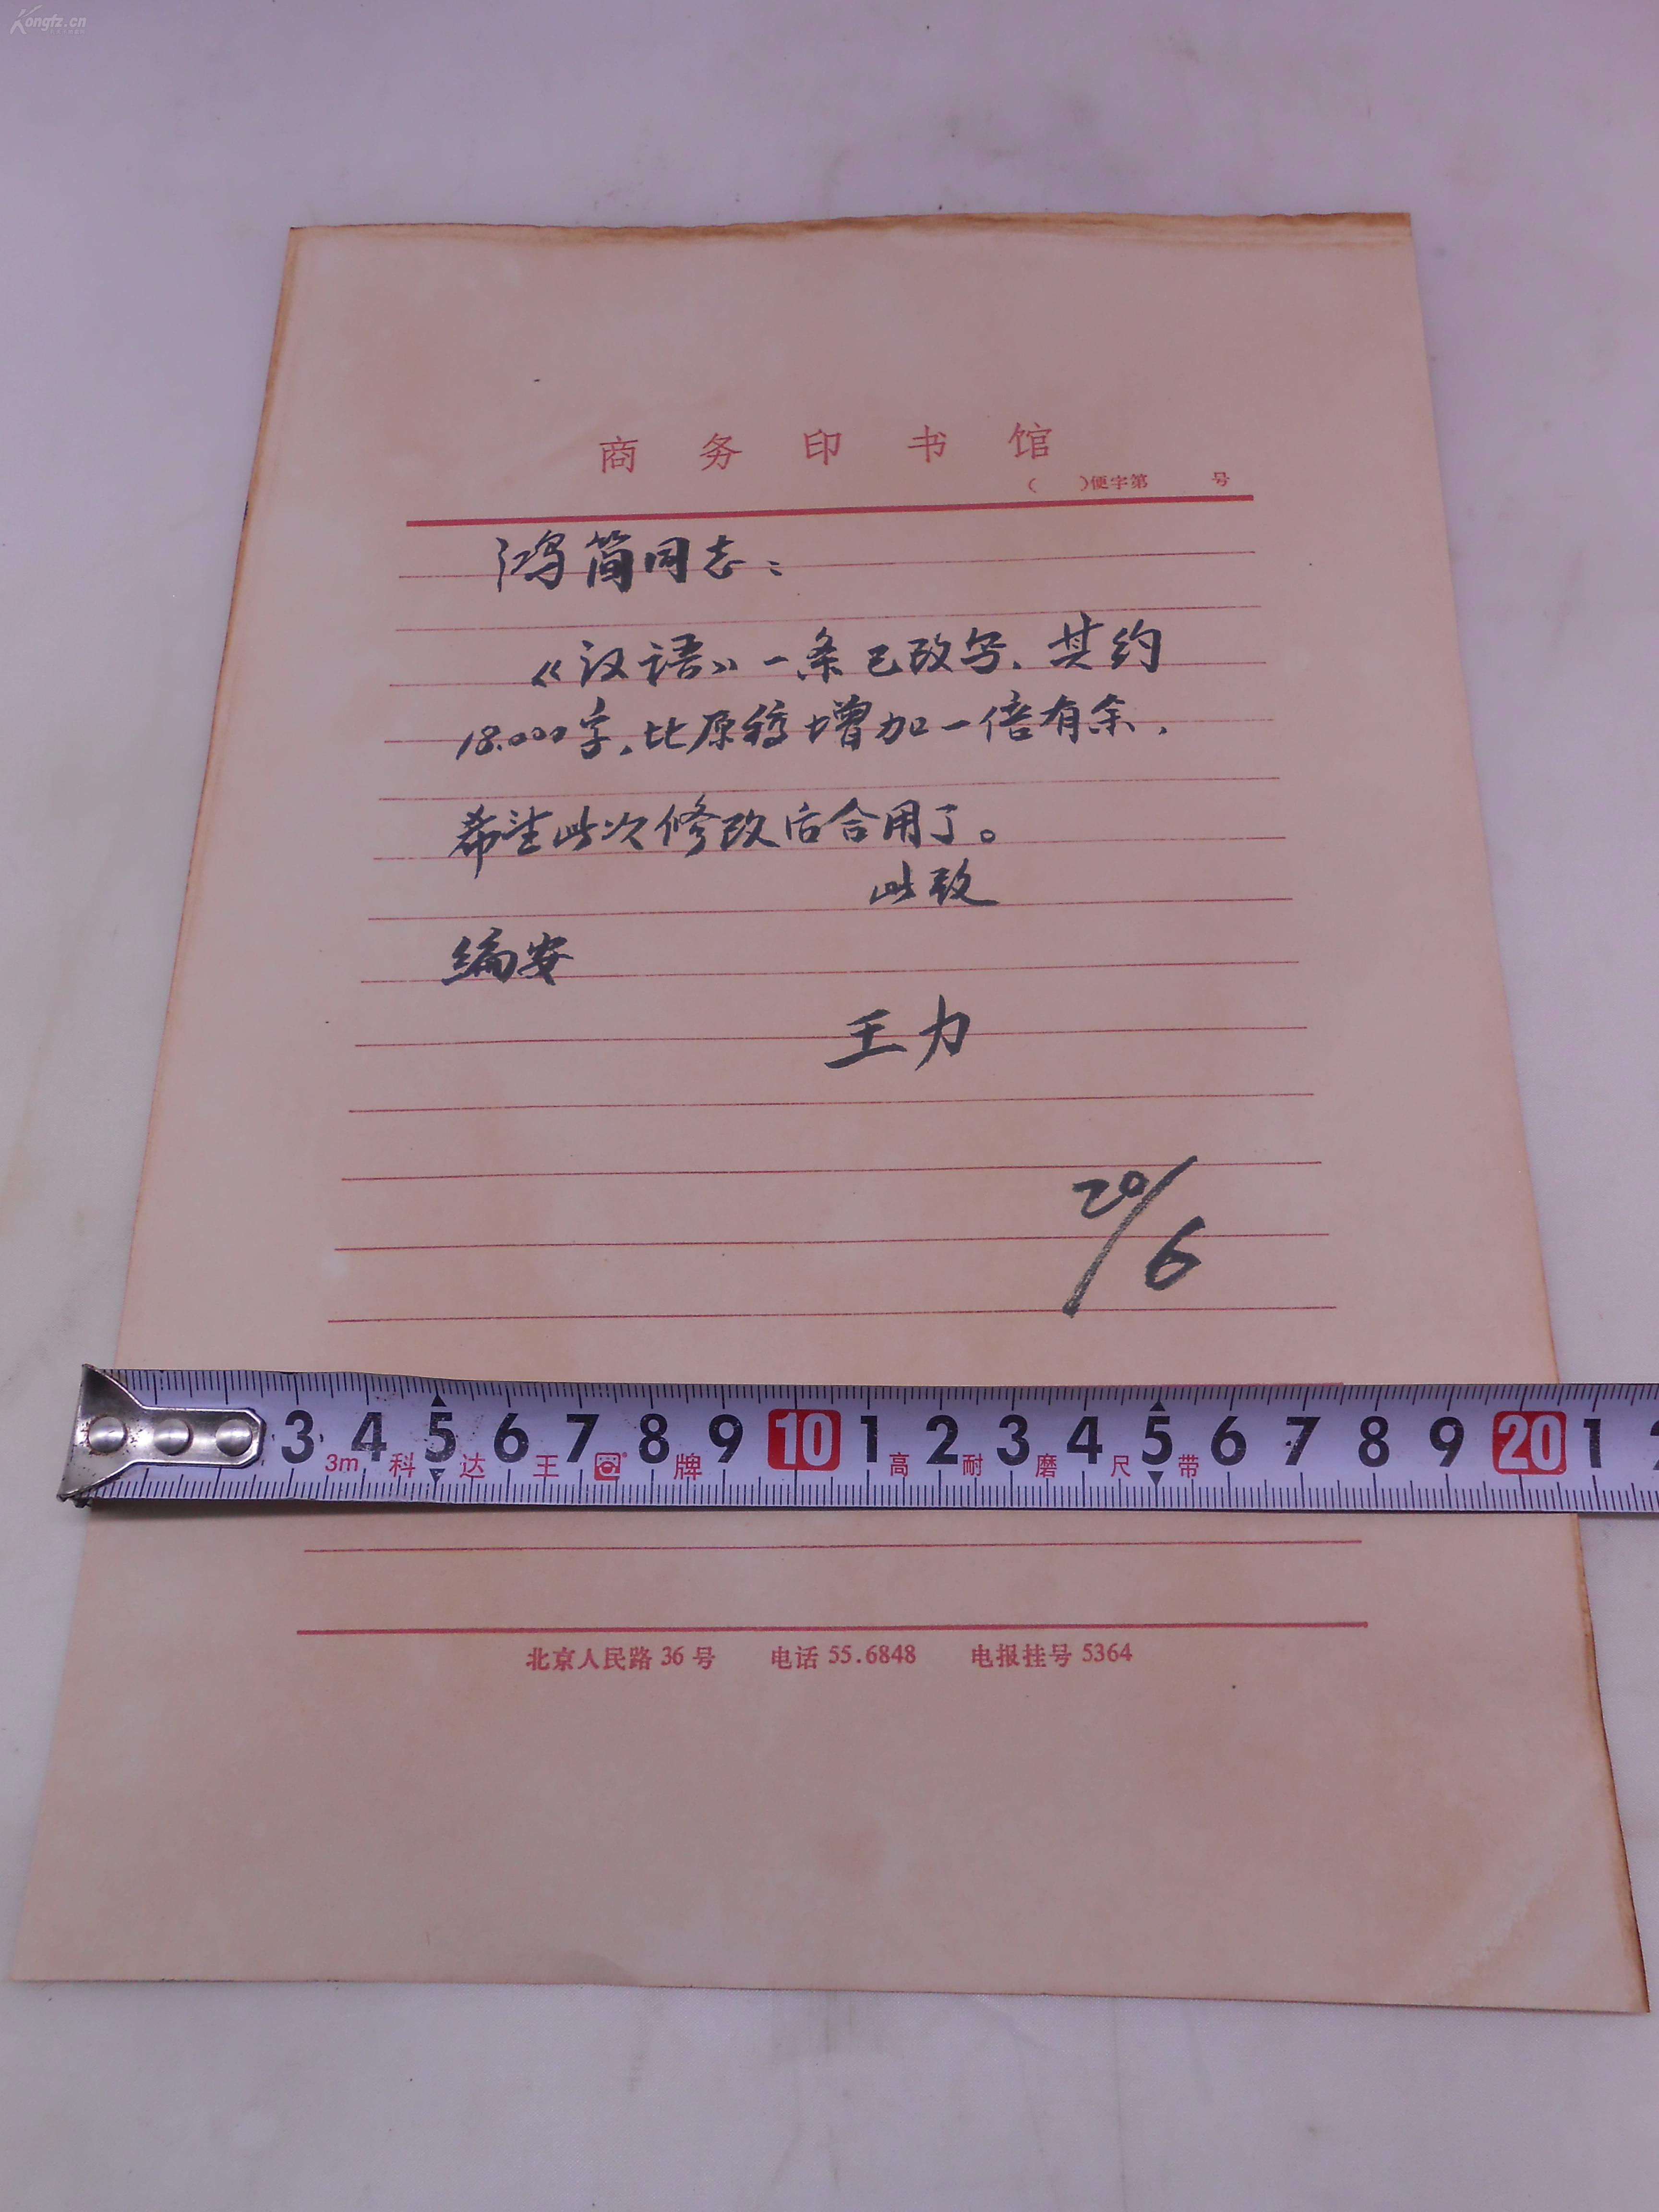 Kongfz.cn
商务印书馆
（ ）便字第 号
鸿简同志：
《汉语》一条已改写，共约
18.000字，比原稿增加一倍有余，
希望此次修改后合用了。
此致
编安
王力
20/6
3 4 5 6 7 8 9 10 1 2 3 4 5 6 7 8 9 20 1
3m 科达王牌 高耐磨尺带
北京人民路36号 电话55.6848 电报挂号5364